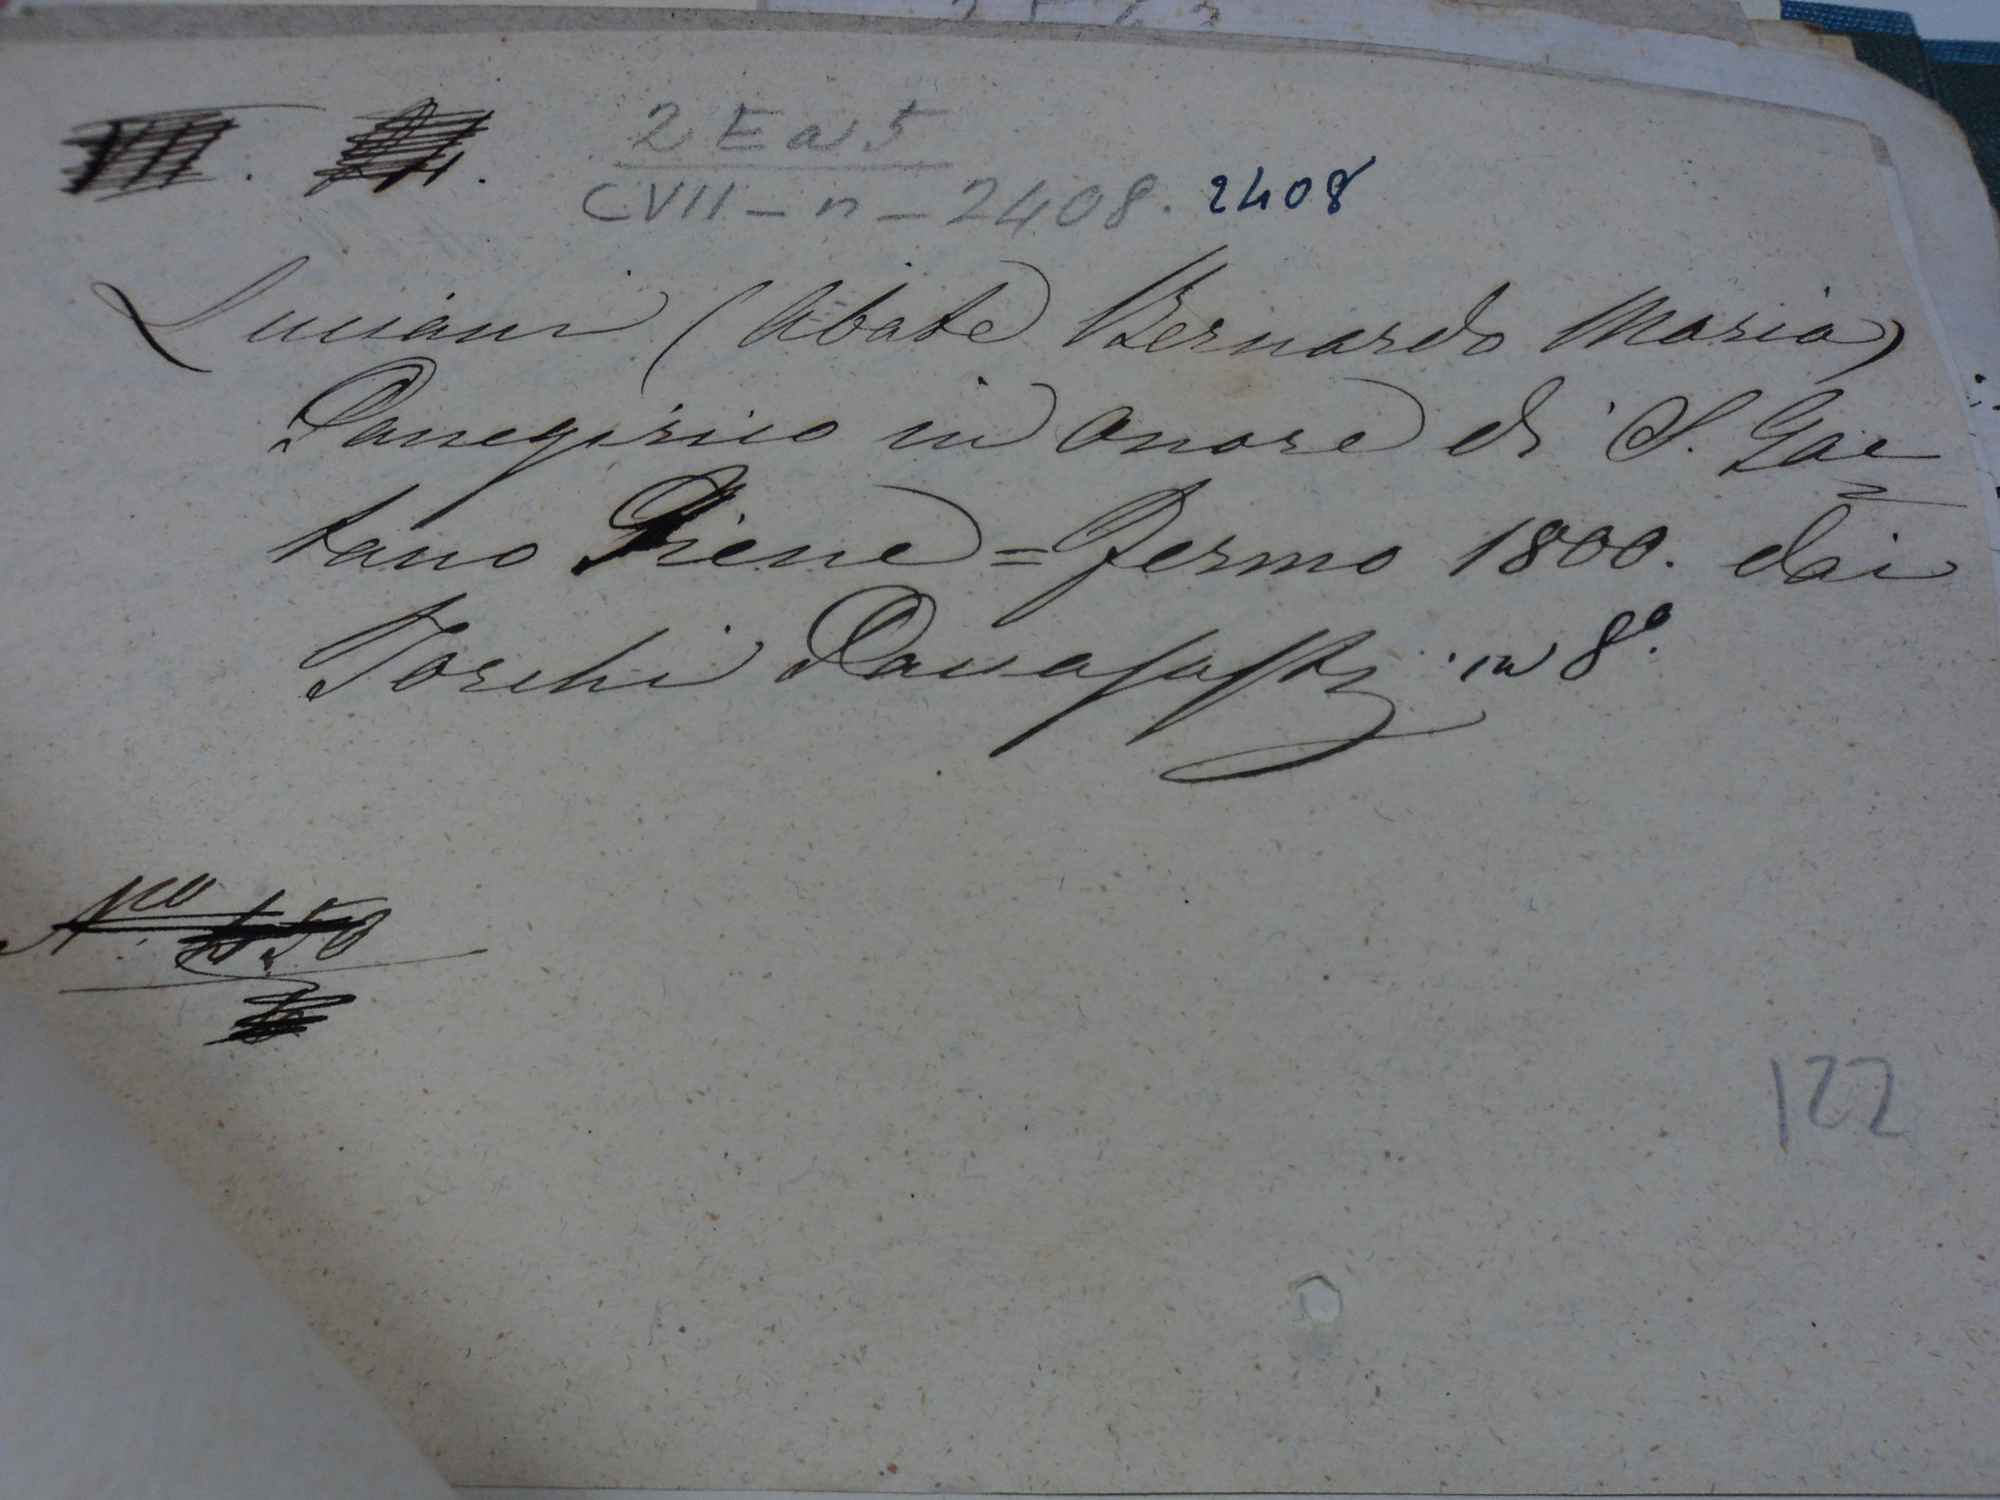 VII.
2 E a 5
CVII - n - 2408. 2408
Luciani (Abate Bernardo Maria)
Panegirico in onore di S. Gae
tano Tiene = Fermo 1800. dai
Torchi Pallasassi in 8.º
N.º
122